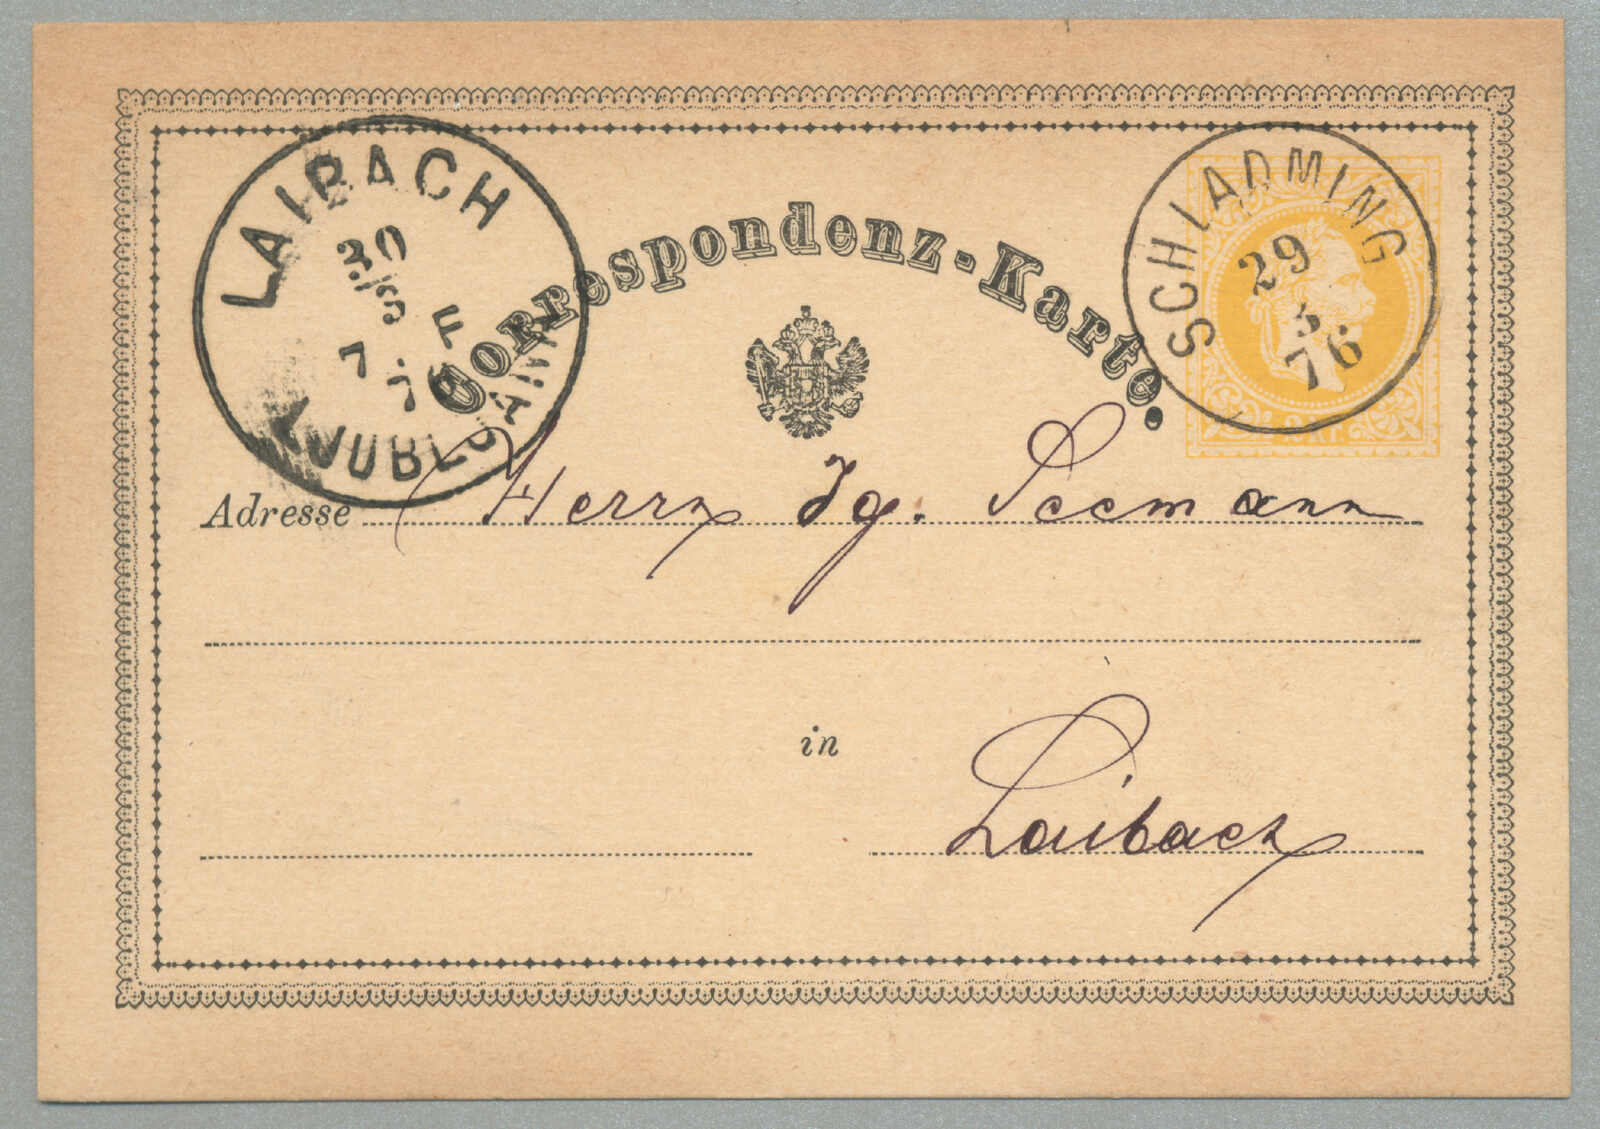 LAIBACH
30
3
7 76 F
LJUBLJANA
Correspondenz-Karte.
SCHLADMING
29
3
76
2 KR.
Adresse Herrn Jg. Seemann
in
Laibach